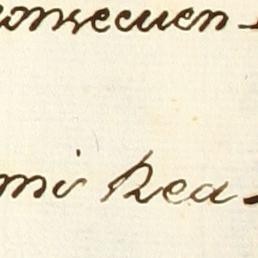 consecuen-
mi Rea-